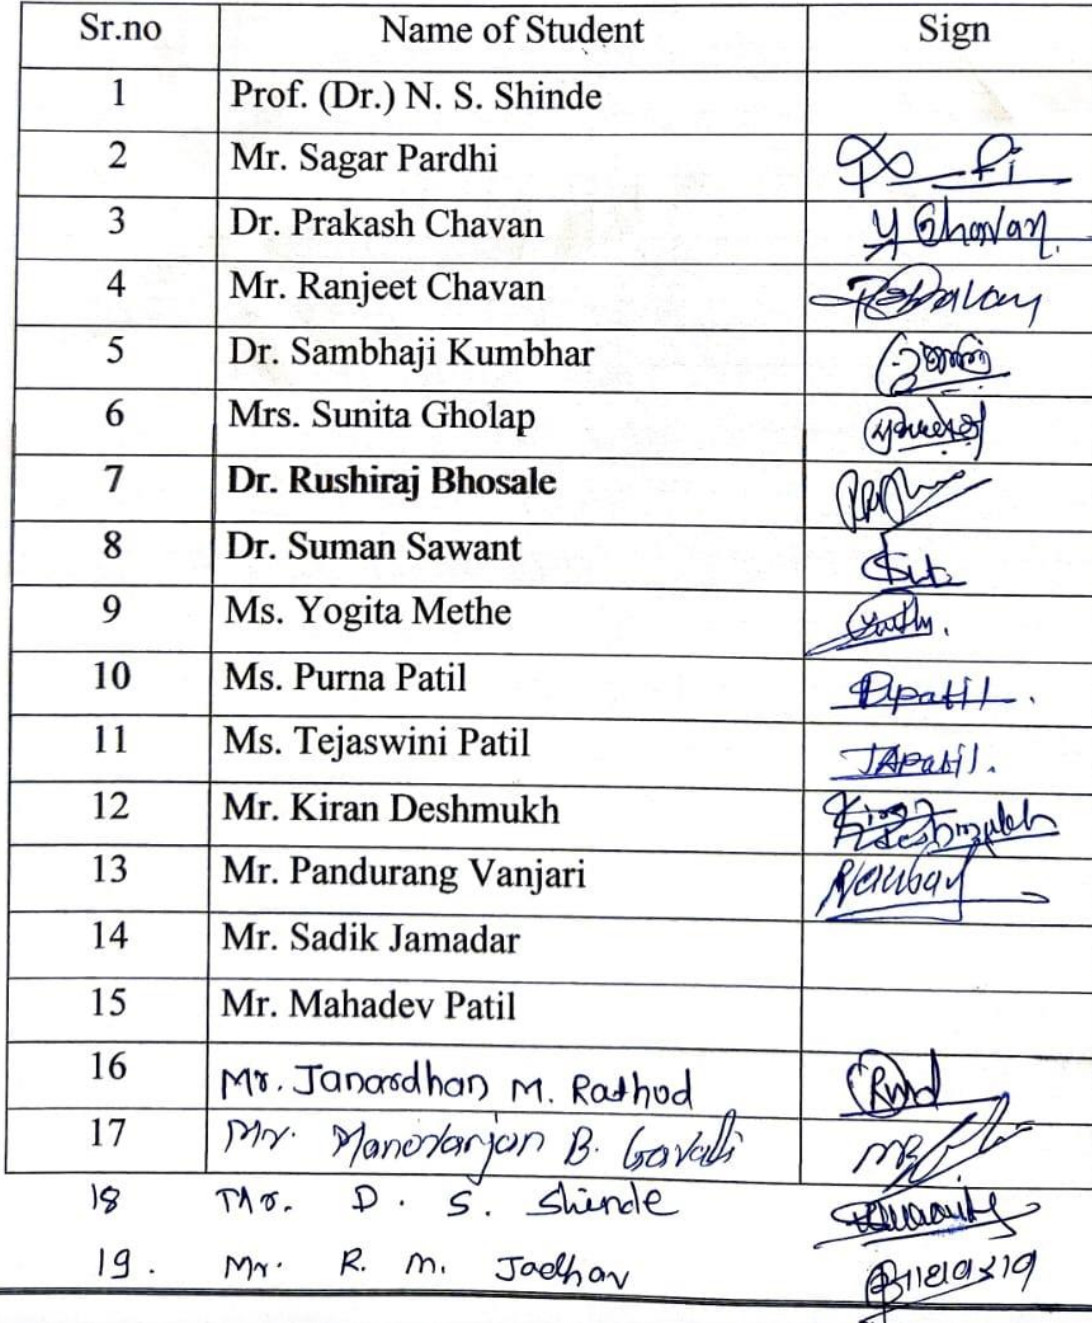 Sr.no Name of Student Sign
1 Prof. (Dr.) N. S. Shinde
2 Mr. Sagar Pardhi
3 Dr. Prakash Chavan Chavan
4 Mr. Ranjeet Chavan
5 Dr. Sambhaji Kumbhar
6 Mrs. Sunita Gholap
7 Dr. Rushiraj Bhosale
8 Dr. Suman Sawant
9 Ms. Yogita Methe
10 Ms. Purna Patil Ppatil.
11 Ms. Tejaswini Patil TAPatil.
12 Mr. Kiran Deshmukh Kiran Deshmukh
13 Mr. Pandurang Vanjari
14 Mr. Sadik Jamadar
15 Mr. Mahadev Patil
16 Mr. Janardhan M. Rathod
17 Mr. Manoranjan B. Gavali
18 Mr. D. S. Shinde
19. Mr. R. M. Jadhav